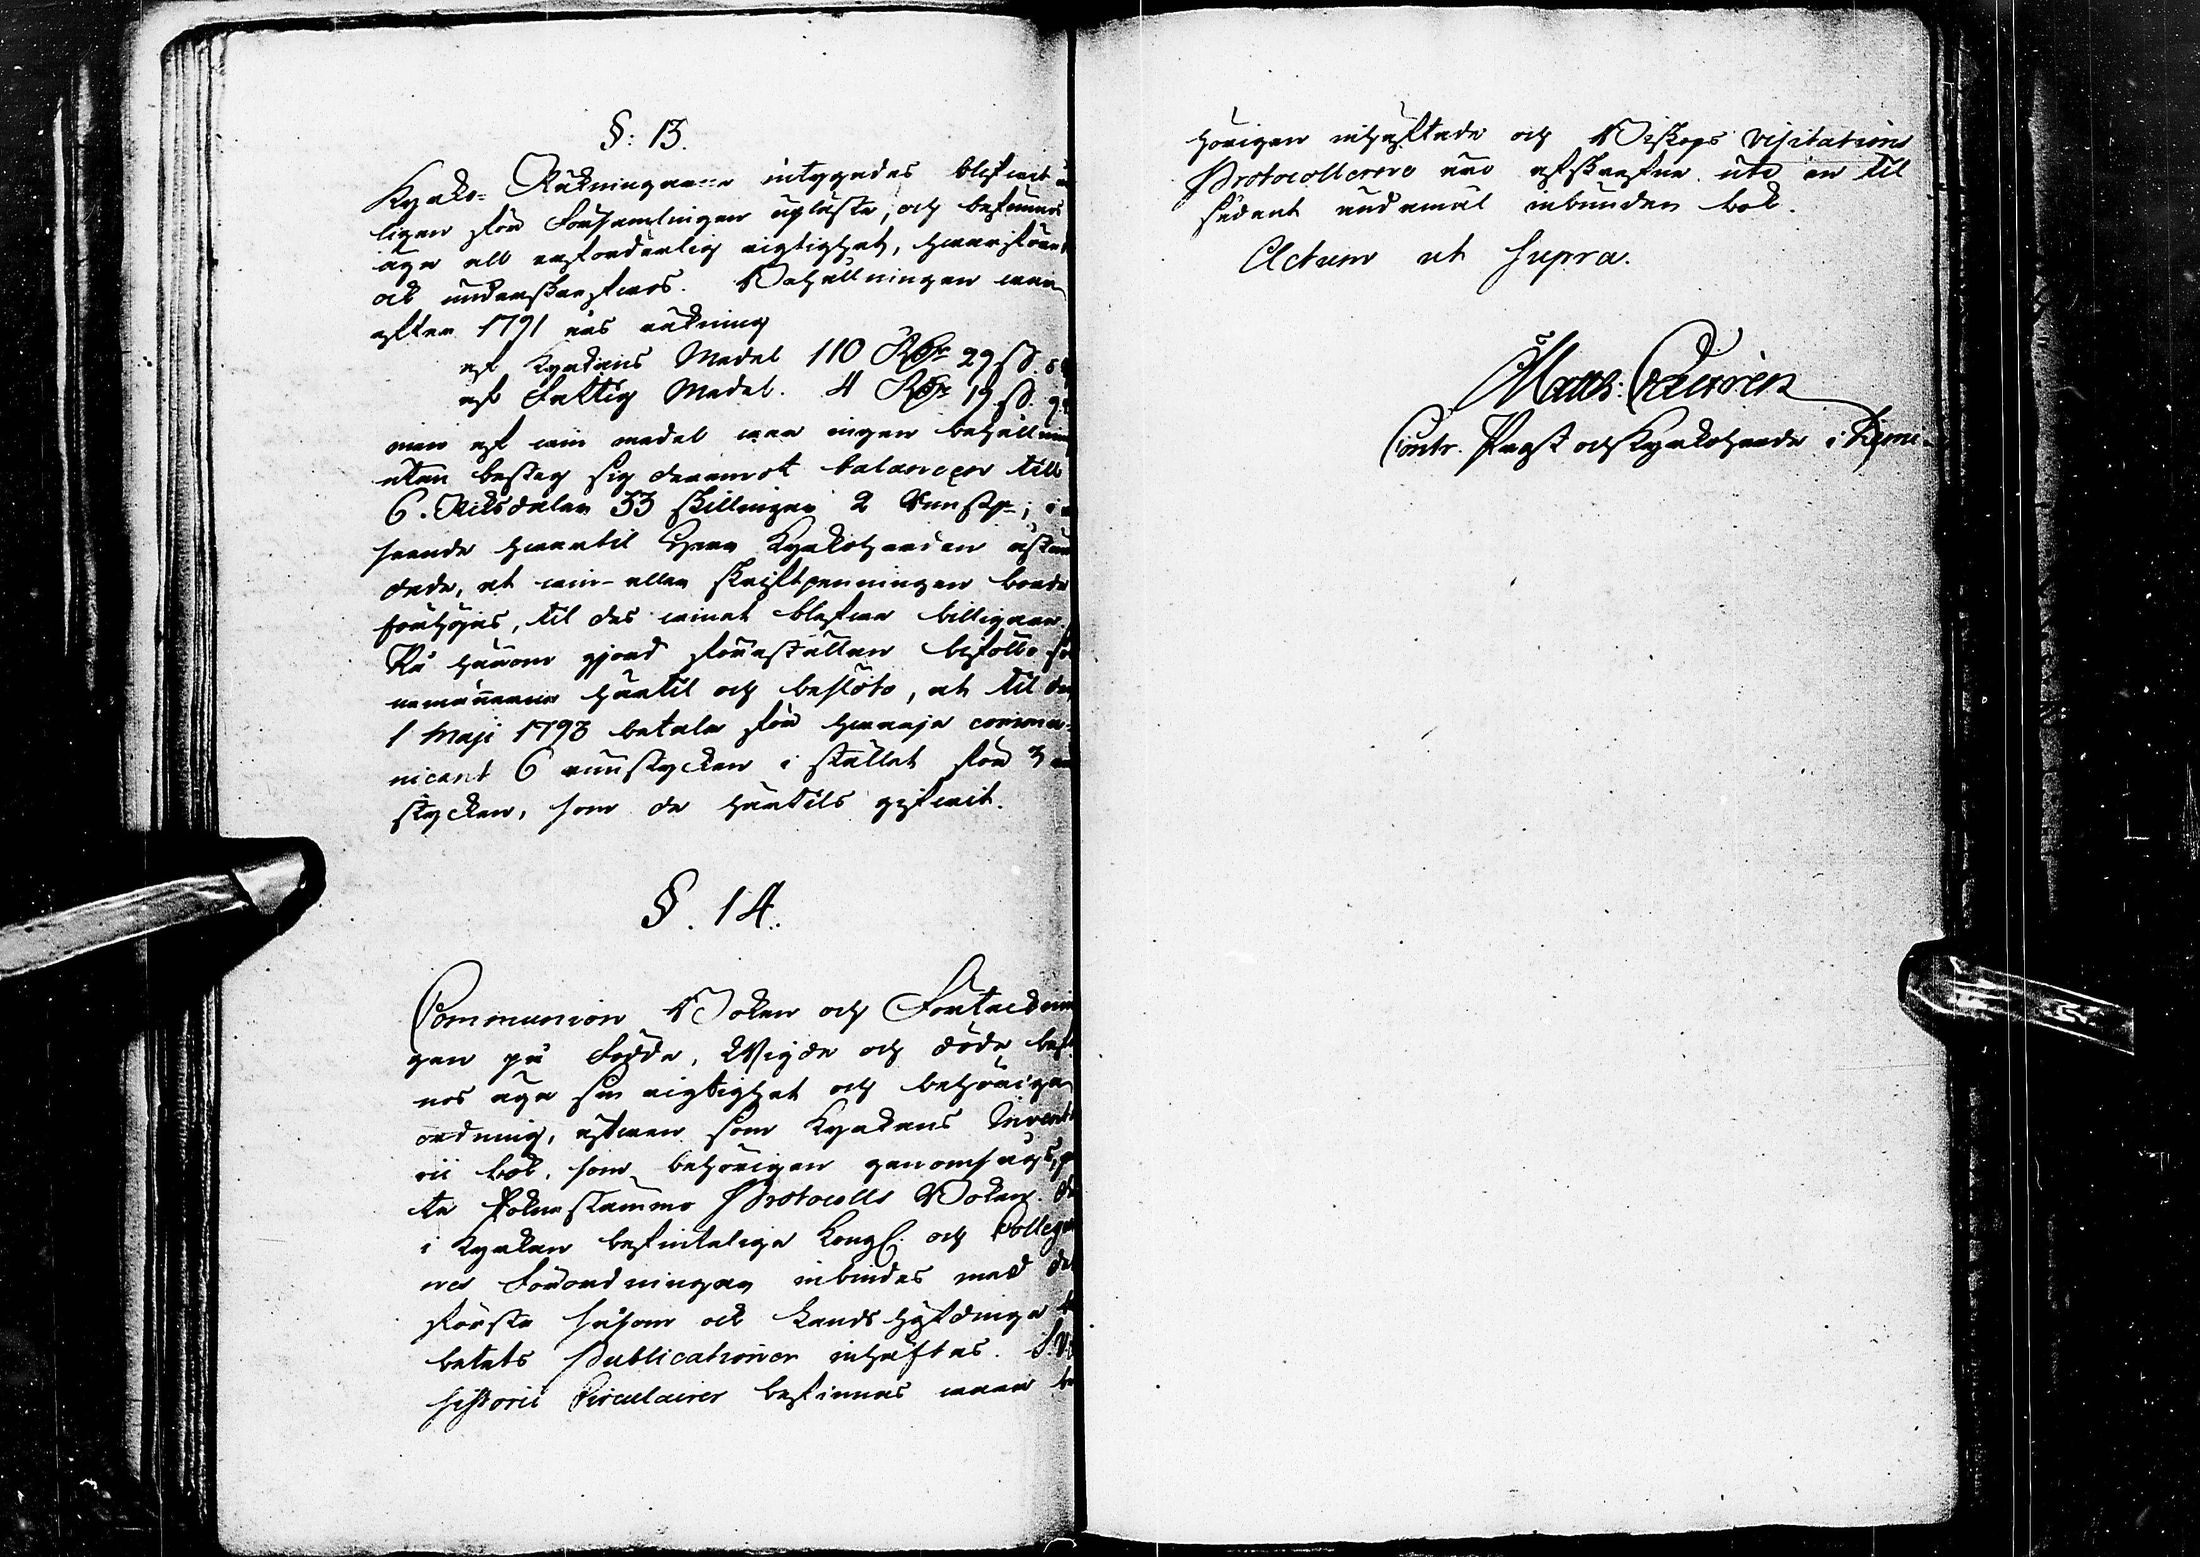 §: 13.
Kyrko-Räkningarne intygades blifwit
ligen för Församlingen upläste, och befunnes
äga all erforderlig rigtighet, hwarföre
ock underskrefwos. Behållningen war
efter 1791 års räkning
af Kyrkans Medel 110 Rdr 29 sk.
af Fattig Medel. 4 Rdr 19 sk.
men af win medel war ingen behållning
utan besteg sig deremot balancen till
6. Riksdaler 33 skillingar 2 runst.;
seende hwartil Herr Kyrkoherden åstun
dade, at win- eller skriftpenningen borde
förhöjas, til des winet blefwe billigare.
På härom gjord föreställan biföllo
nemännerna härtil och beslöto, at til den
1 Maji 1793 betala för hwarje commu-
nicant 6 runstycken i stället för 3
stycken, som de härtils gifwit.
§. 14.
Communion Boken och Förteckning
gen på Födde, Wigde och döde
nos äga sin rigtighet och behöriga
ordning, äfwen som Kyrkans Invent
rii bok, som behörigen genomsågs,
te Sockenstämmo Protocolls Boken.
i Kyrkan befinteliga Kongl. och Colleg
nes Förordningar inbindes med det
första såsom ock Landshöfdinge
betets Publicationer inhäftas.
sistorii Circulairer befinnas wara
hörigen inhäftade och Biskops Visitations
Protocollerne äro afskrefne uti en til
sådant ändamål inbunden bok.
Actum ut supra.
Matth:
Contr. Prost och Kyrkoherde i Kemi